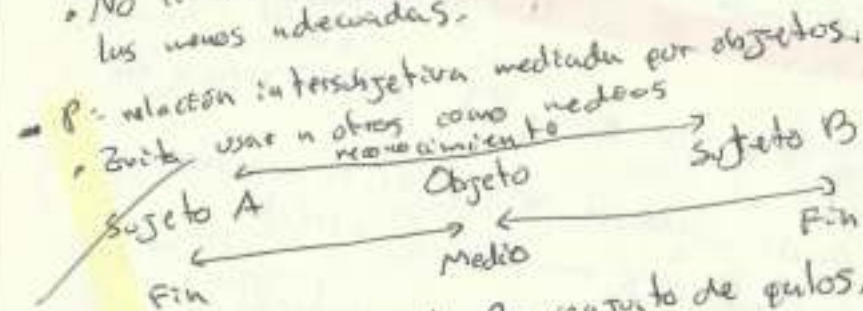 • No
las menos adecuadas.
- P: relación intersubjetiva mediada por objetos.
• Evita usar a otros como medios
reconocimiento
Sujeto A Objeto Sujeto B
Fin Medio Fin
conjunto de